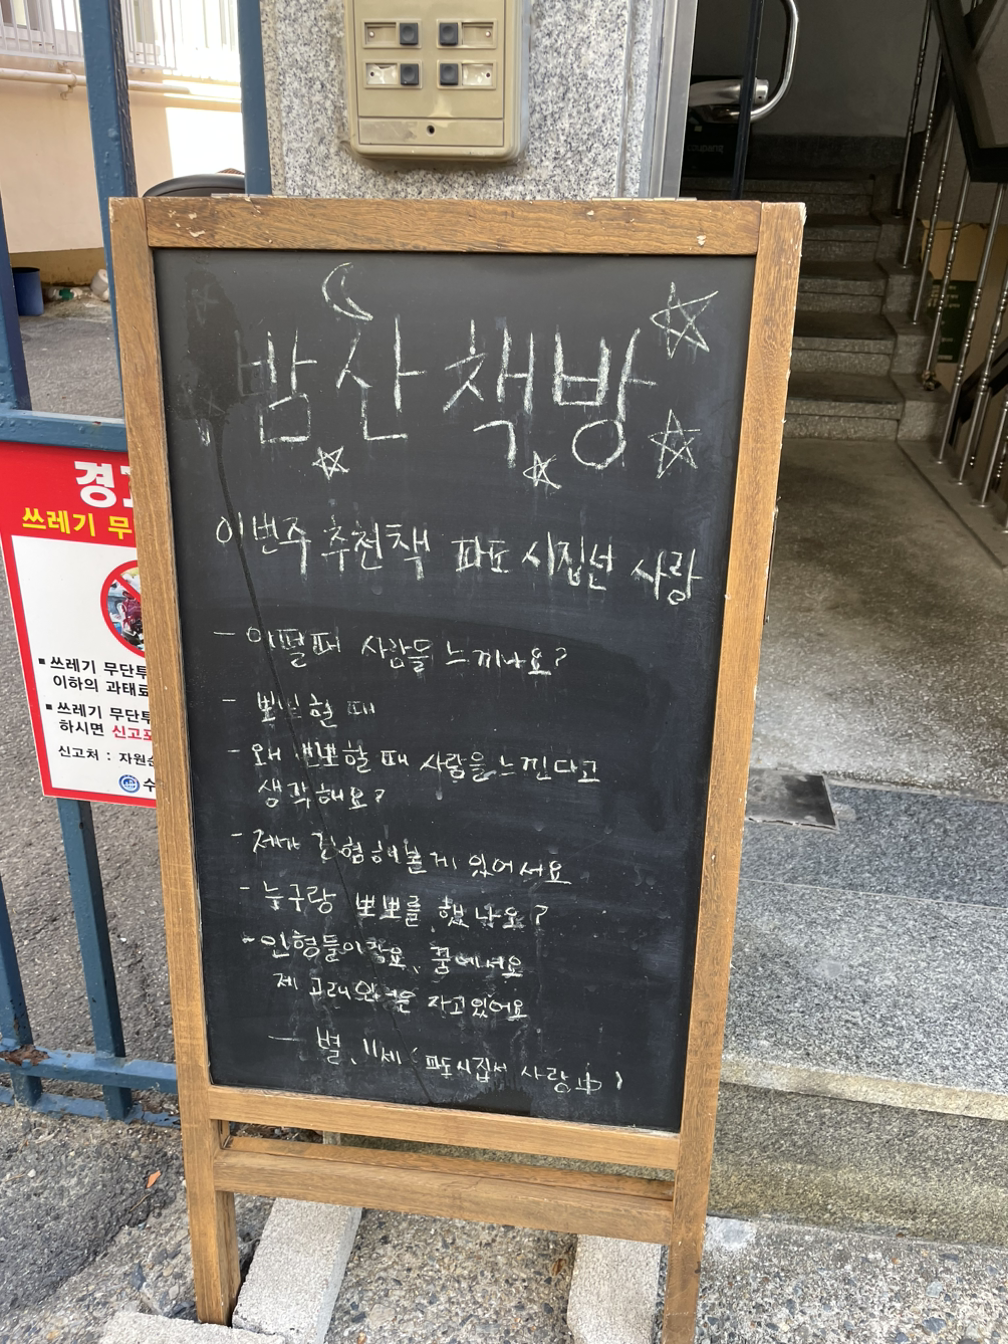 밤산책방
이번주 추천책 파도 시집선 사랑
- 어떨때 사랑을 느끼나요?
- 뽀뽀할 때
- 왜 뽀뽀할 때 사랑을 느낀다고
생각해요?
- 제가 경험해본 게 있어서요
- 누구랑 뽀뽀를 했나요?
- 인형들이랑요, 꿈에서요
제 고래인형은 자고있어요
- 별, 11세 (파도시집선 사랑 中)
경고
쓰레기 무
쓰레기 무단투
이하의 과태료
쓰레기 무단투
하시면 신고포
신고처 : 자원순
수
coupang